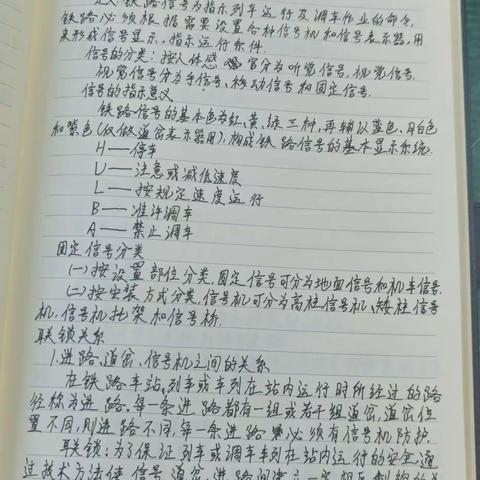 定义:铁路信号为指示列车运行及调车作业的命令,
铁路必须根据需要设置各种信号机和信号表示器,用
来形成信号显示,指示运行条件.
信号的分类:按人体感官分为听觉信号,视觉信号.
视觉信号分为手信号、移动信号和固定信号.
信号的指示意义
铁路信号的基本色为红、黄、绿三种,再辅以蓝色、月白色
和紫色(仅做道岔表示器用),构成铁路信号的基本显示系统.
H——停车
U——注意或减低速度
L——按规定速度运行
B——准许调车
A——禁止调车
固定信号分类
(一)按设置部位分类,固定信号可分为地面信号和机车信号.
(二)按安装方式分类,信号机可分为高柱信号机、矮柱信号
机,信号机托架和信号桥.
联锁关系
1.进路、道岔、信号机之间的关系
在铁路车站,列车或车列在站内运行时所经过的路
径称为进路.每一条进路都有一组或若干组道岔,道岔位
置不同,则进路不同,每一条进路必须有信号机防护.
联锁:为了保证列车或调车车列在站内运行的安全,通
过技术方法使信号、道岔、进路间建立一定相互制约的关